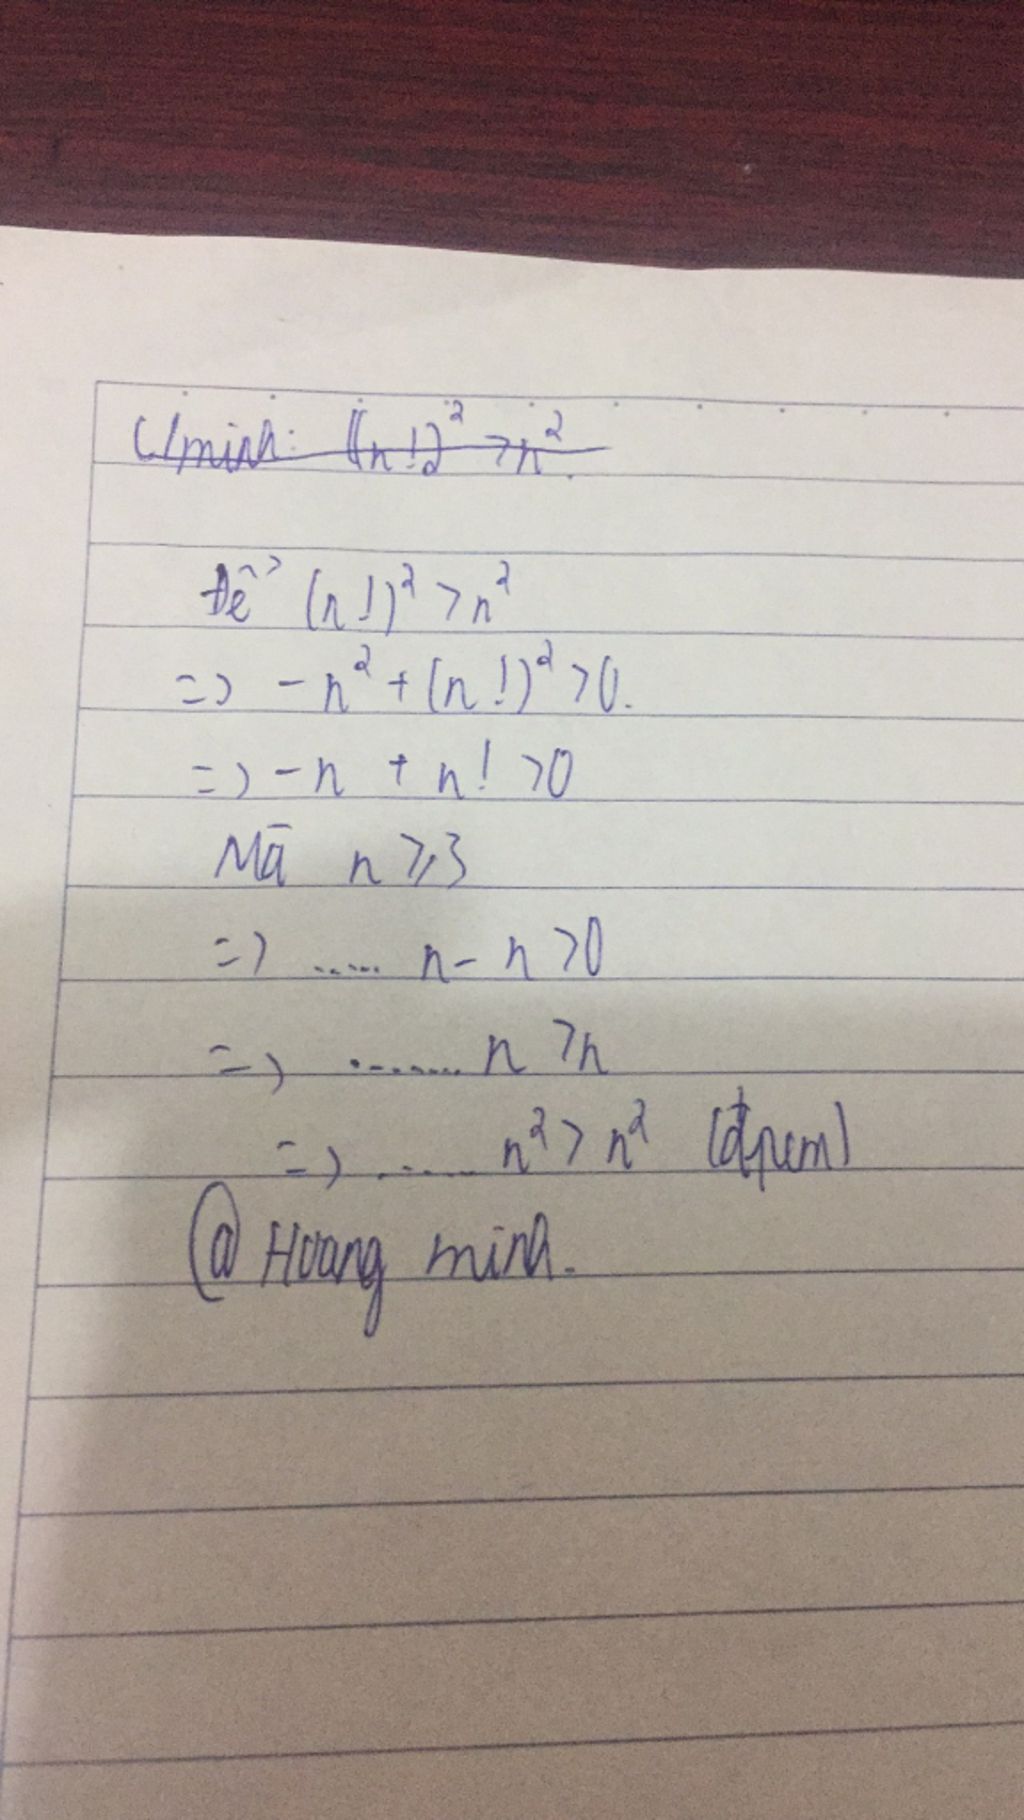 C/minh: (n!)² > n²
Để (n!)² > n²
=> - n² + (n!)² > 0.
=> - n + n! > 0
Mà n ≥ 3
=> ..... n - n > 0
=> ........ n > n
=> ...... n² > n² (đpcm)
@ Hoang minh.